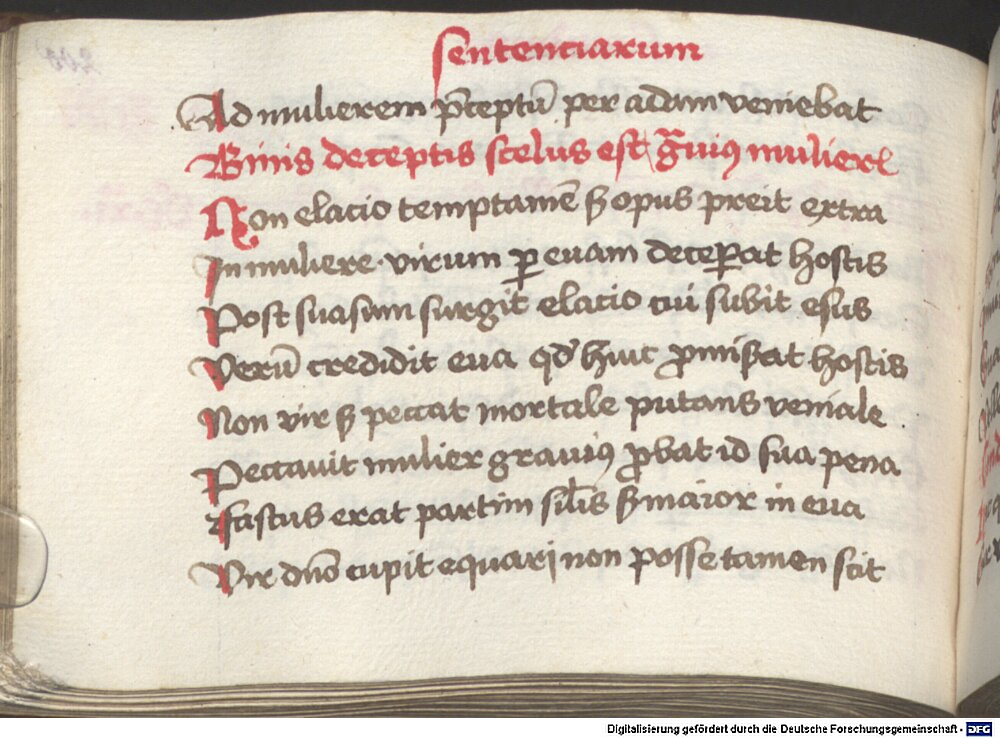 sentenciarum
Ad mulierem p̄ceptū per adam veniebat
Binis deceptis scelus est gͣuiꝰ mulierl
Non elacio temptamē sꝫ opus preit extra
In muliere virum ꝑ euam deceꝑat hostis
Post suasum surgit elacio cui subit esus
Verū credidit eua qd̓ huic ꝓmiserat hostis
Non vir sꝫ peccat mortale putans veniale
Peccauit mulier grauiꝰ ꝓbat id sua pena
Fastus erat partim sil̄is sꝫ maior in eua
Vir dn̄o cupit equari non posse tamen scit
Digitalisierung gefördert durch die Deutsche Forschungsgemeinschaft - DFG